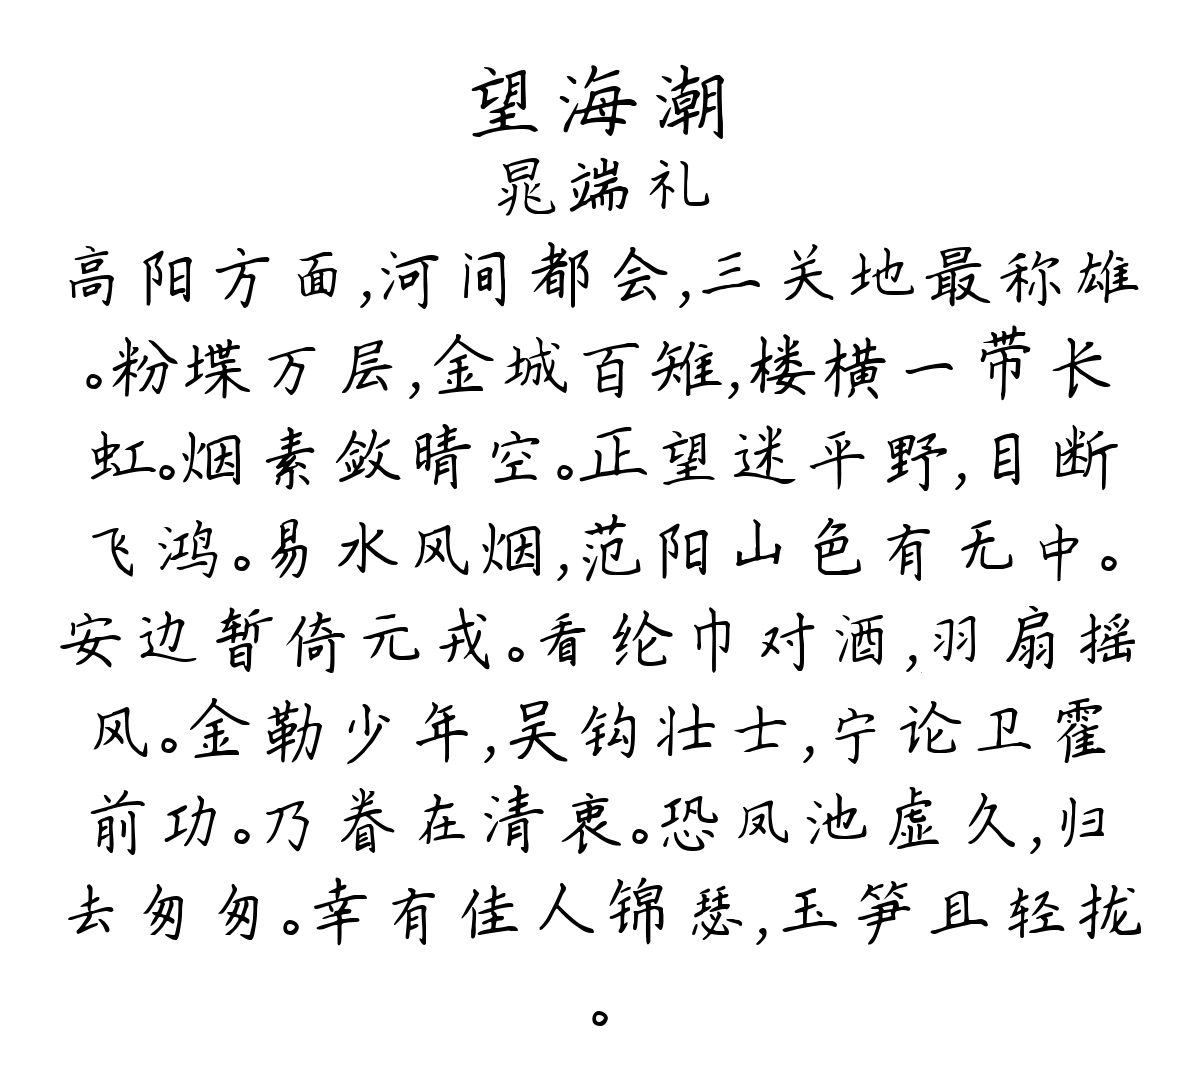 望海潮
晁端礼
高阳方面,河间都会,三关地最称雄
。粉堞万层,金城百雉,楼横一带长
虹。烟素敛晴空。正望迷平野,目断
飞鸿。易水风烟,范阳山色有无中。
安边暂倚元戎。看纶巾对酒,羽扇摇
风。金勒少年,吴钩壮士,宁论卫霍
前功。乃眷在清衷。恐凤池虚久,归
去匆匆。幸有佳人锦瑟,玉笋且轻拢
。